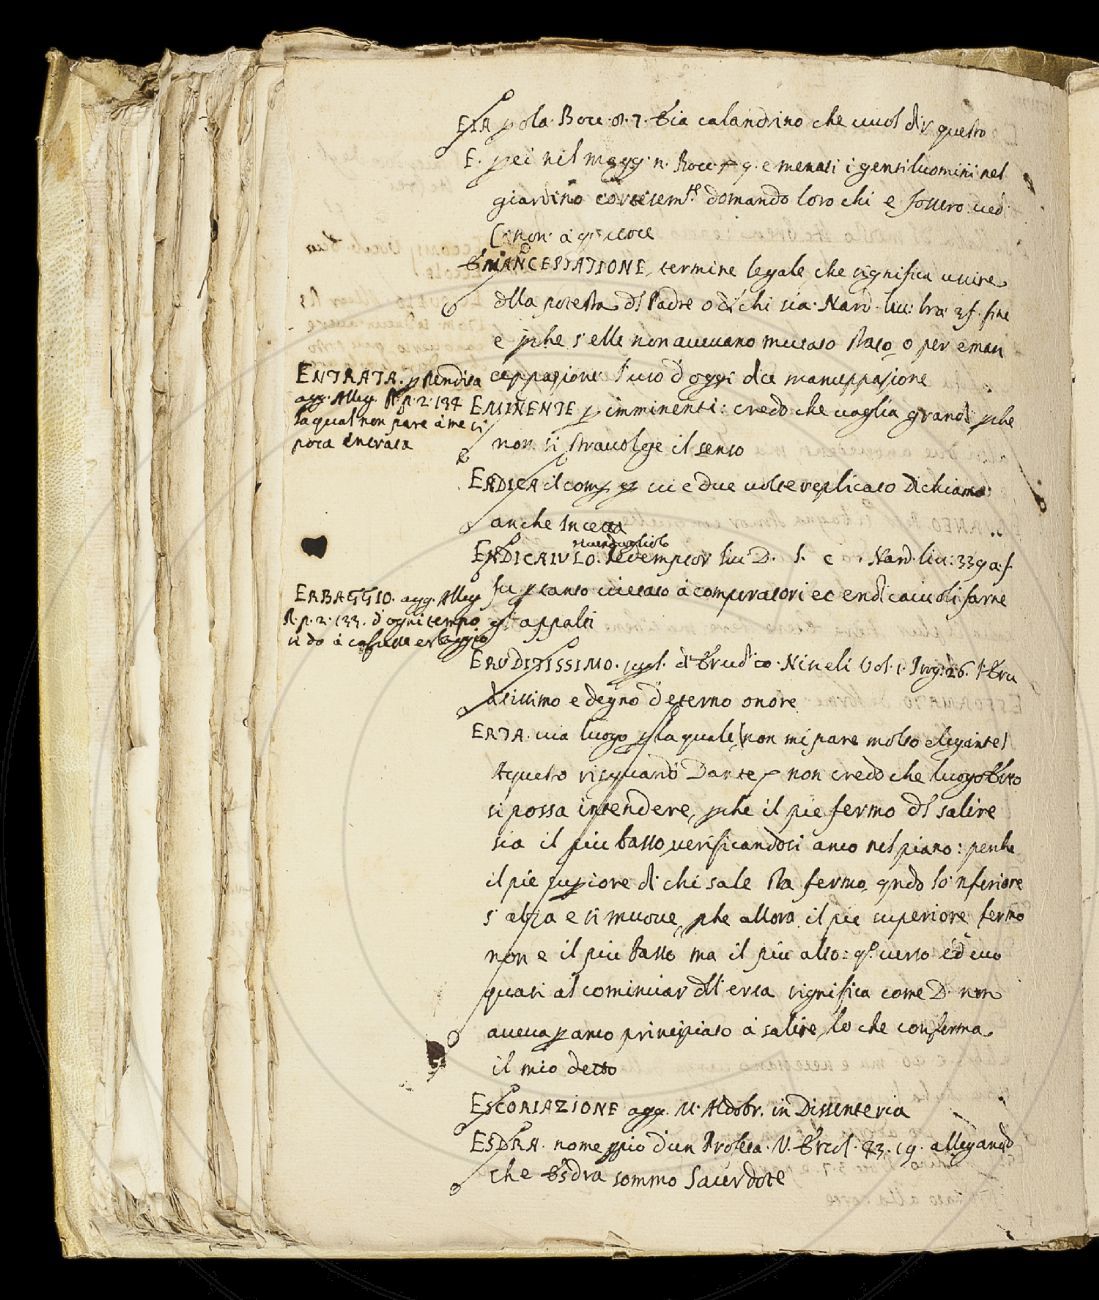 EIA pola. Bocc. 8. 7. Eia calandrino che vuol dir questo
E. pei nel magg. n. Bocc. g. e menati i gentiluomini nel
giardino cortesem.te domando loro chi e fossero
EMANCEPPATIONE, termine legale che significa uscire
della potesta del Padre o di chi sia. Nard. liv. fine
e perche s'elle non avevano mutato stato, o per eman
ceppazione. l'uso d'oggi dice manceppazione
ENTRATA. p rendita
agg. Alleg. R. p. 2. 134
la qual non pare a me si
pora entrata
EMINENTE p imminenti: credo che vaglia grandi pche
non si stravolge il senso
ENDICA il comp. vi è due volte replicato Dichiamo
anche Incetta
rivendugliolo
ENDICAIVLO. Redemptor liv. D. Nard. liv. 339
fu p tanto vietato a comperatori ed endicaiuoli farne
gli appalti
ERBAGGIO. agg. Alleg.
R. p. 2. 133. d'ogni tempo
erbaggio
ERVDITISSIMO. supl. di Erudito. Nineli Vol. 1. 26. Eru
ditissimo e degno d'eterno onore
ERTA. via luogo p la quale (non mi pare molto elegante)
A questo Dante p non credo che luogo Erto
si possa intendere, pche il pie fermo del salire
sia il più basso verificandosi anco nel piano: perche
il pie superiore di chi sale sta fermo, qndo lo inferiore
s'alza e si muove, pche allora il pie superiore fermo
non e il più basso ma il più alto: verso ed ecco
quasi al cominciar dell'erta significa come D. non
aveva p anco principiato a salire, lo che conferma
il mio detto
ESCORIAZIONE agg. V. Aldobr. in Dissenteria
ESDRA. nome ppio d'un Profeta. V. Ercol. 83. 19. allegando
che Esdra sommo Sacerdote